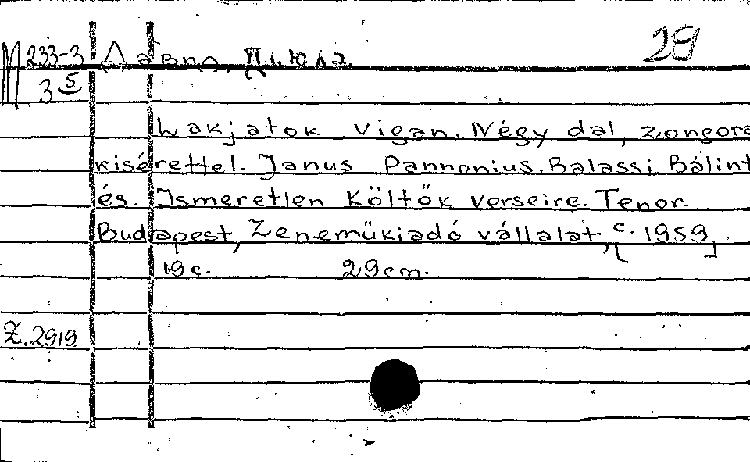 29
М 233-3 Давид, Дюла.
3 5
Lakjatok vigan. Négy dal, zongora
kisérettel. Janus Pannonius. Balassi Bálint
és. Ismeretlen Költők verseire. Tenor
Budapest, Zeneműkiadó vállalat, [c. 1959]
19 c. 29 cm.
Z. 2919